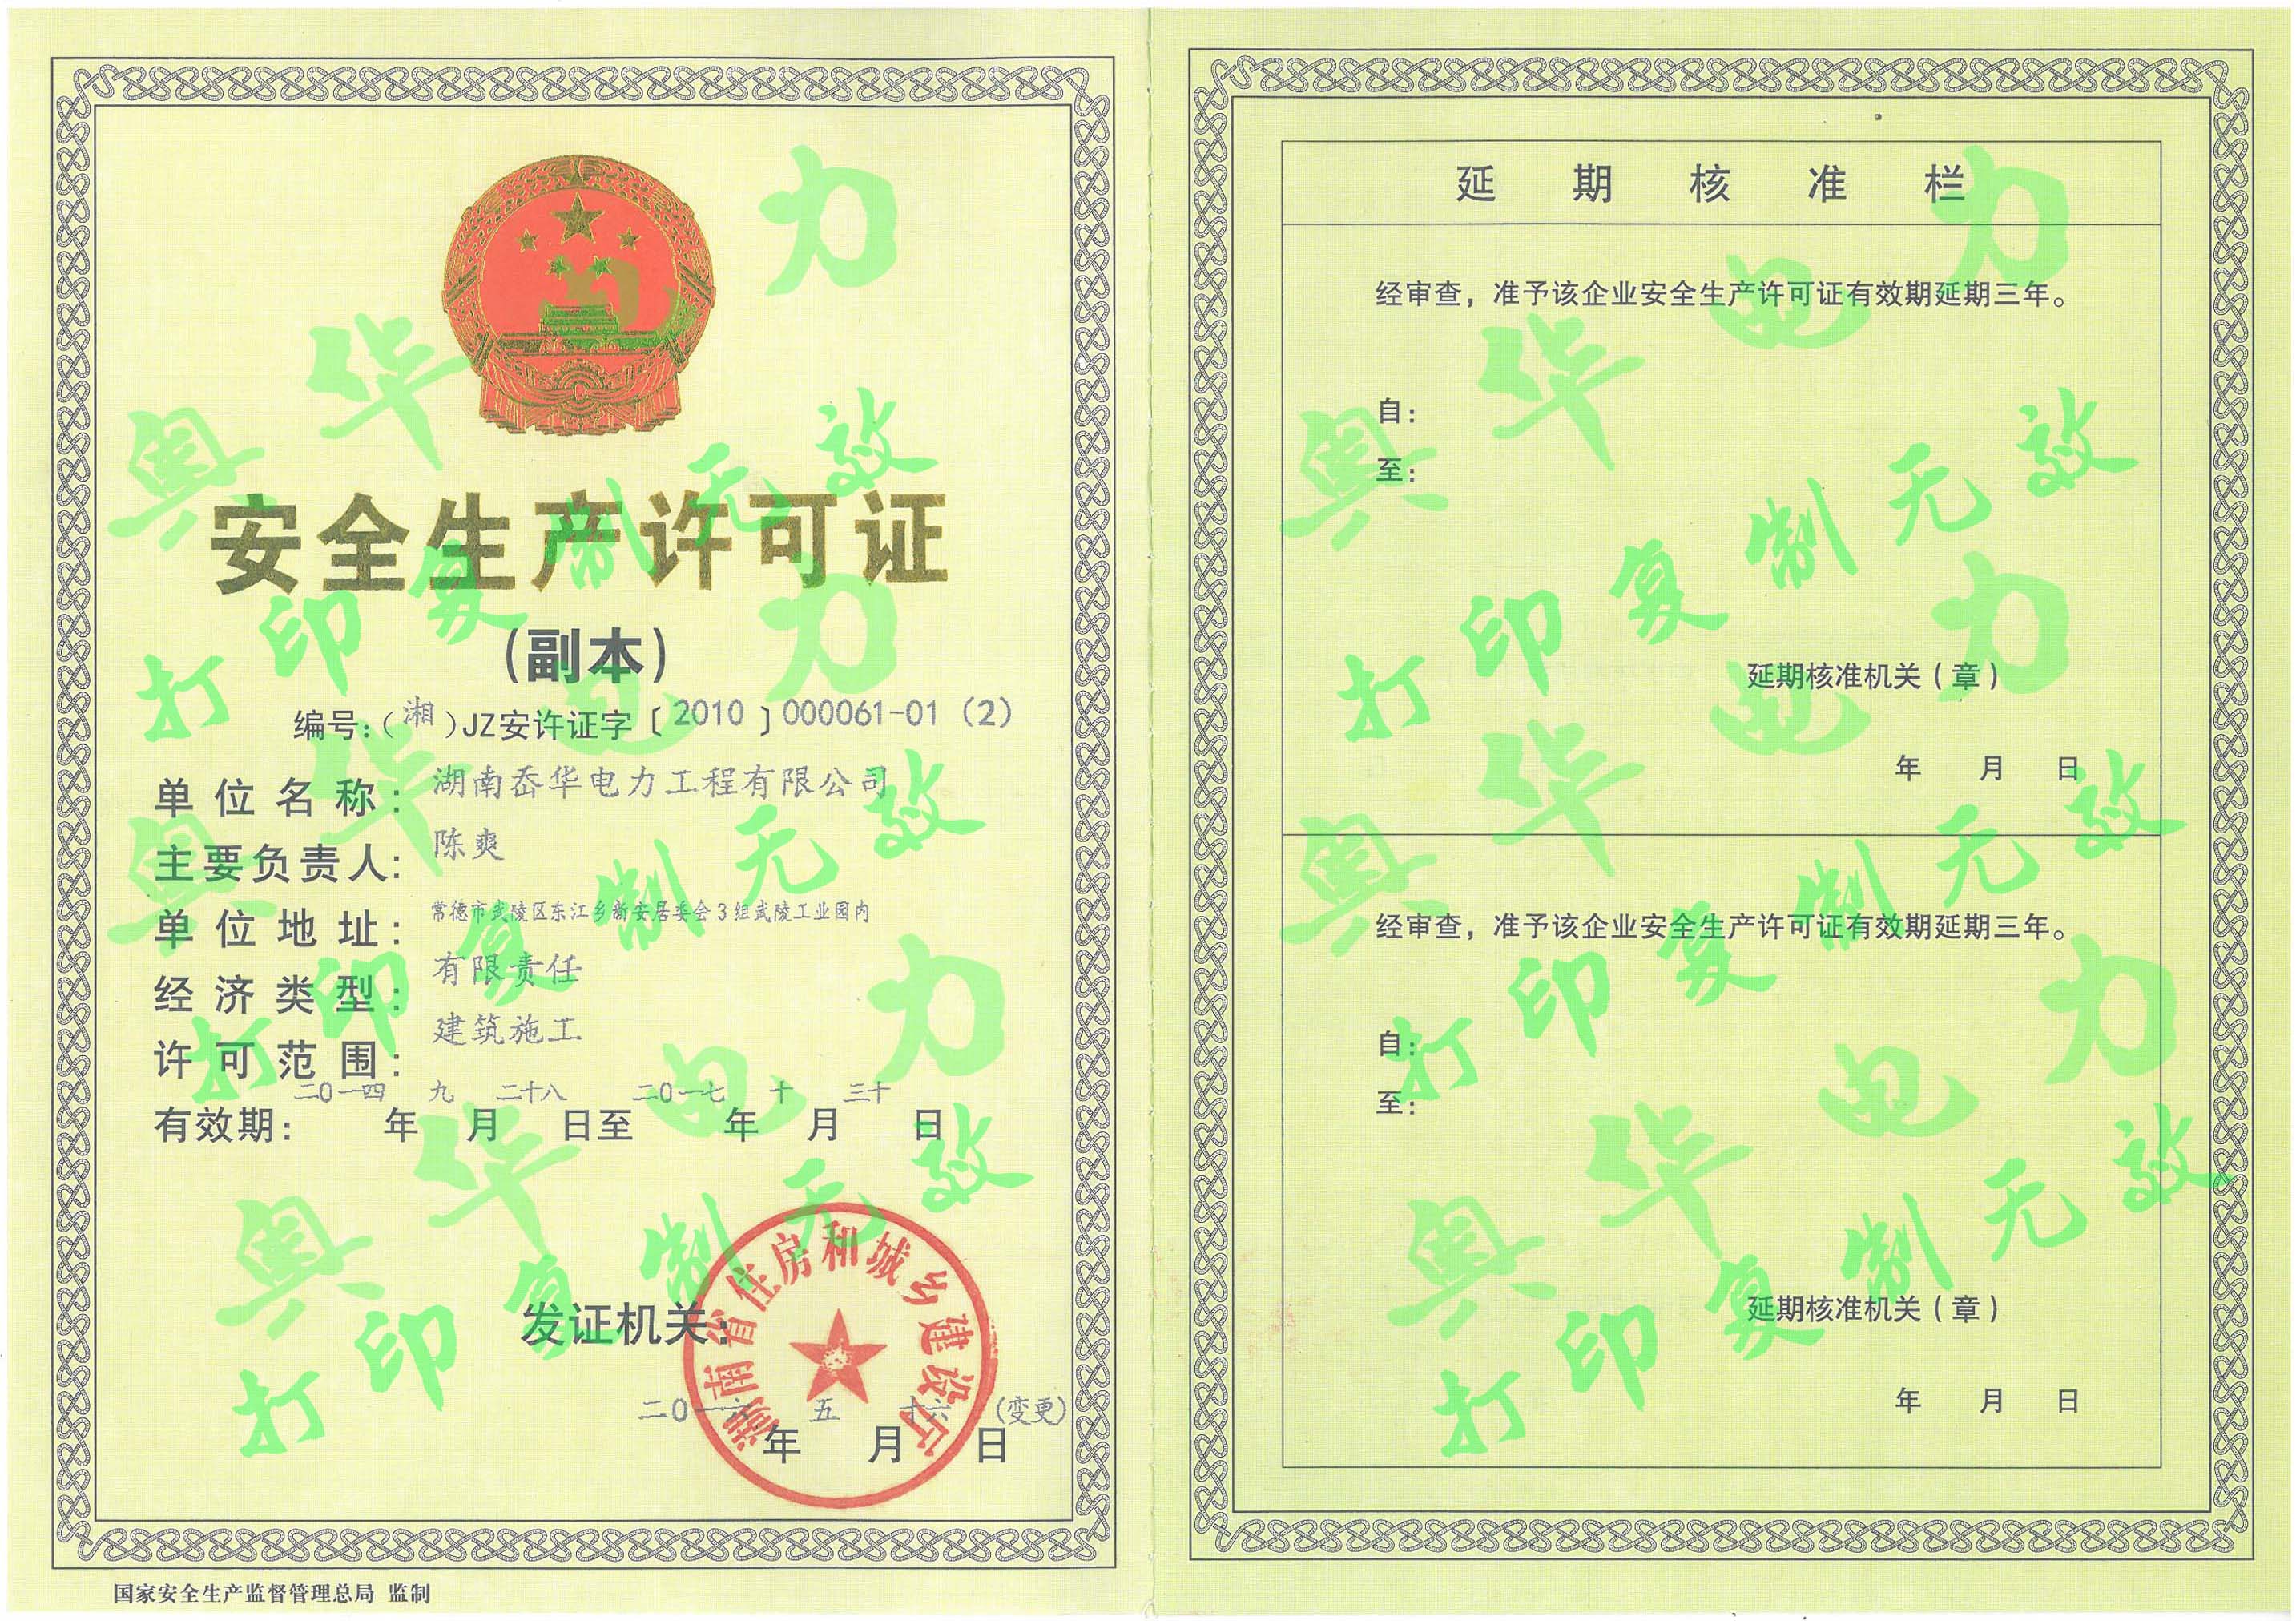 安全生产许可证
(副本)
编号:(湘)JZ安许证字〔2010〕000061-01(2)
单位名称: 湖南岙华电力工程有限公司
主要负责人: 陈爽
单位地址: 常德市武陵区东江乡新安居委会3组武陵工业园内
经济类型: 有限责任
许可范围: 建筑施工
有效期: 二0一四年九月二十八日至二0一七年十月三十日
发证机关:
湖南省住房和城乡建设厅
二0一六年五月十六日(变更)
国家安全生产监督管理总局 监制
延期核准栏
经审查，准予该企业安全生产许可证有效期延期三年。
自:
至:
延期核准机关(章)
年 月 日
经审查，准予该企业安全生产许可证有效期延期三年。
自:
至:
延期核准机关(章)
年 月 日
奥华电力
打印复制无效
奥华电力
打印复制无效
奥华电力
打印复制无效
奥华电力
打印复制无效
奥华电力
打印复制无效
奥华电力
打印复制无效